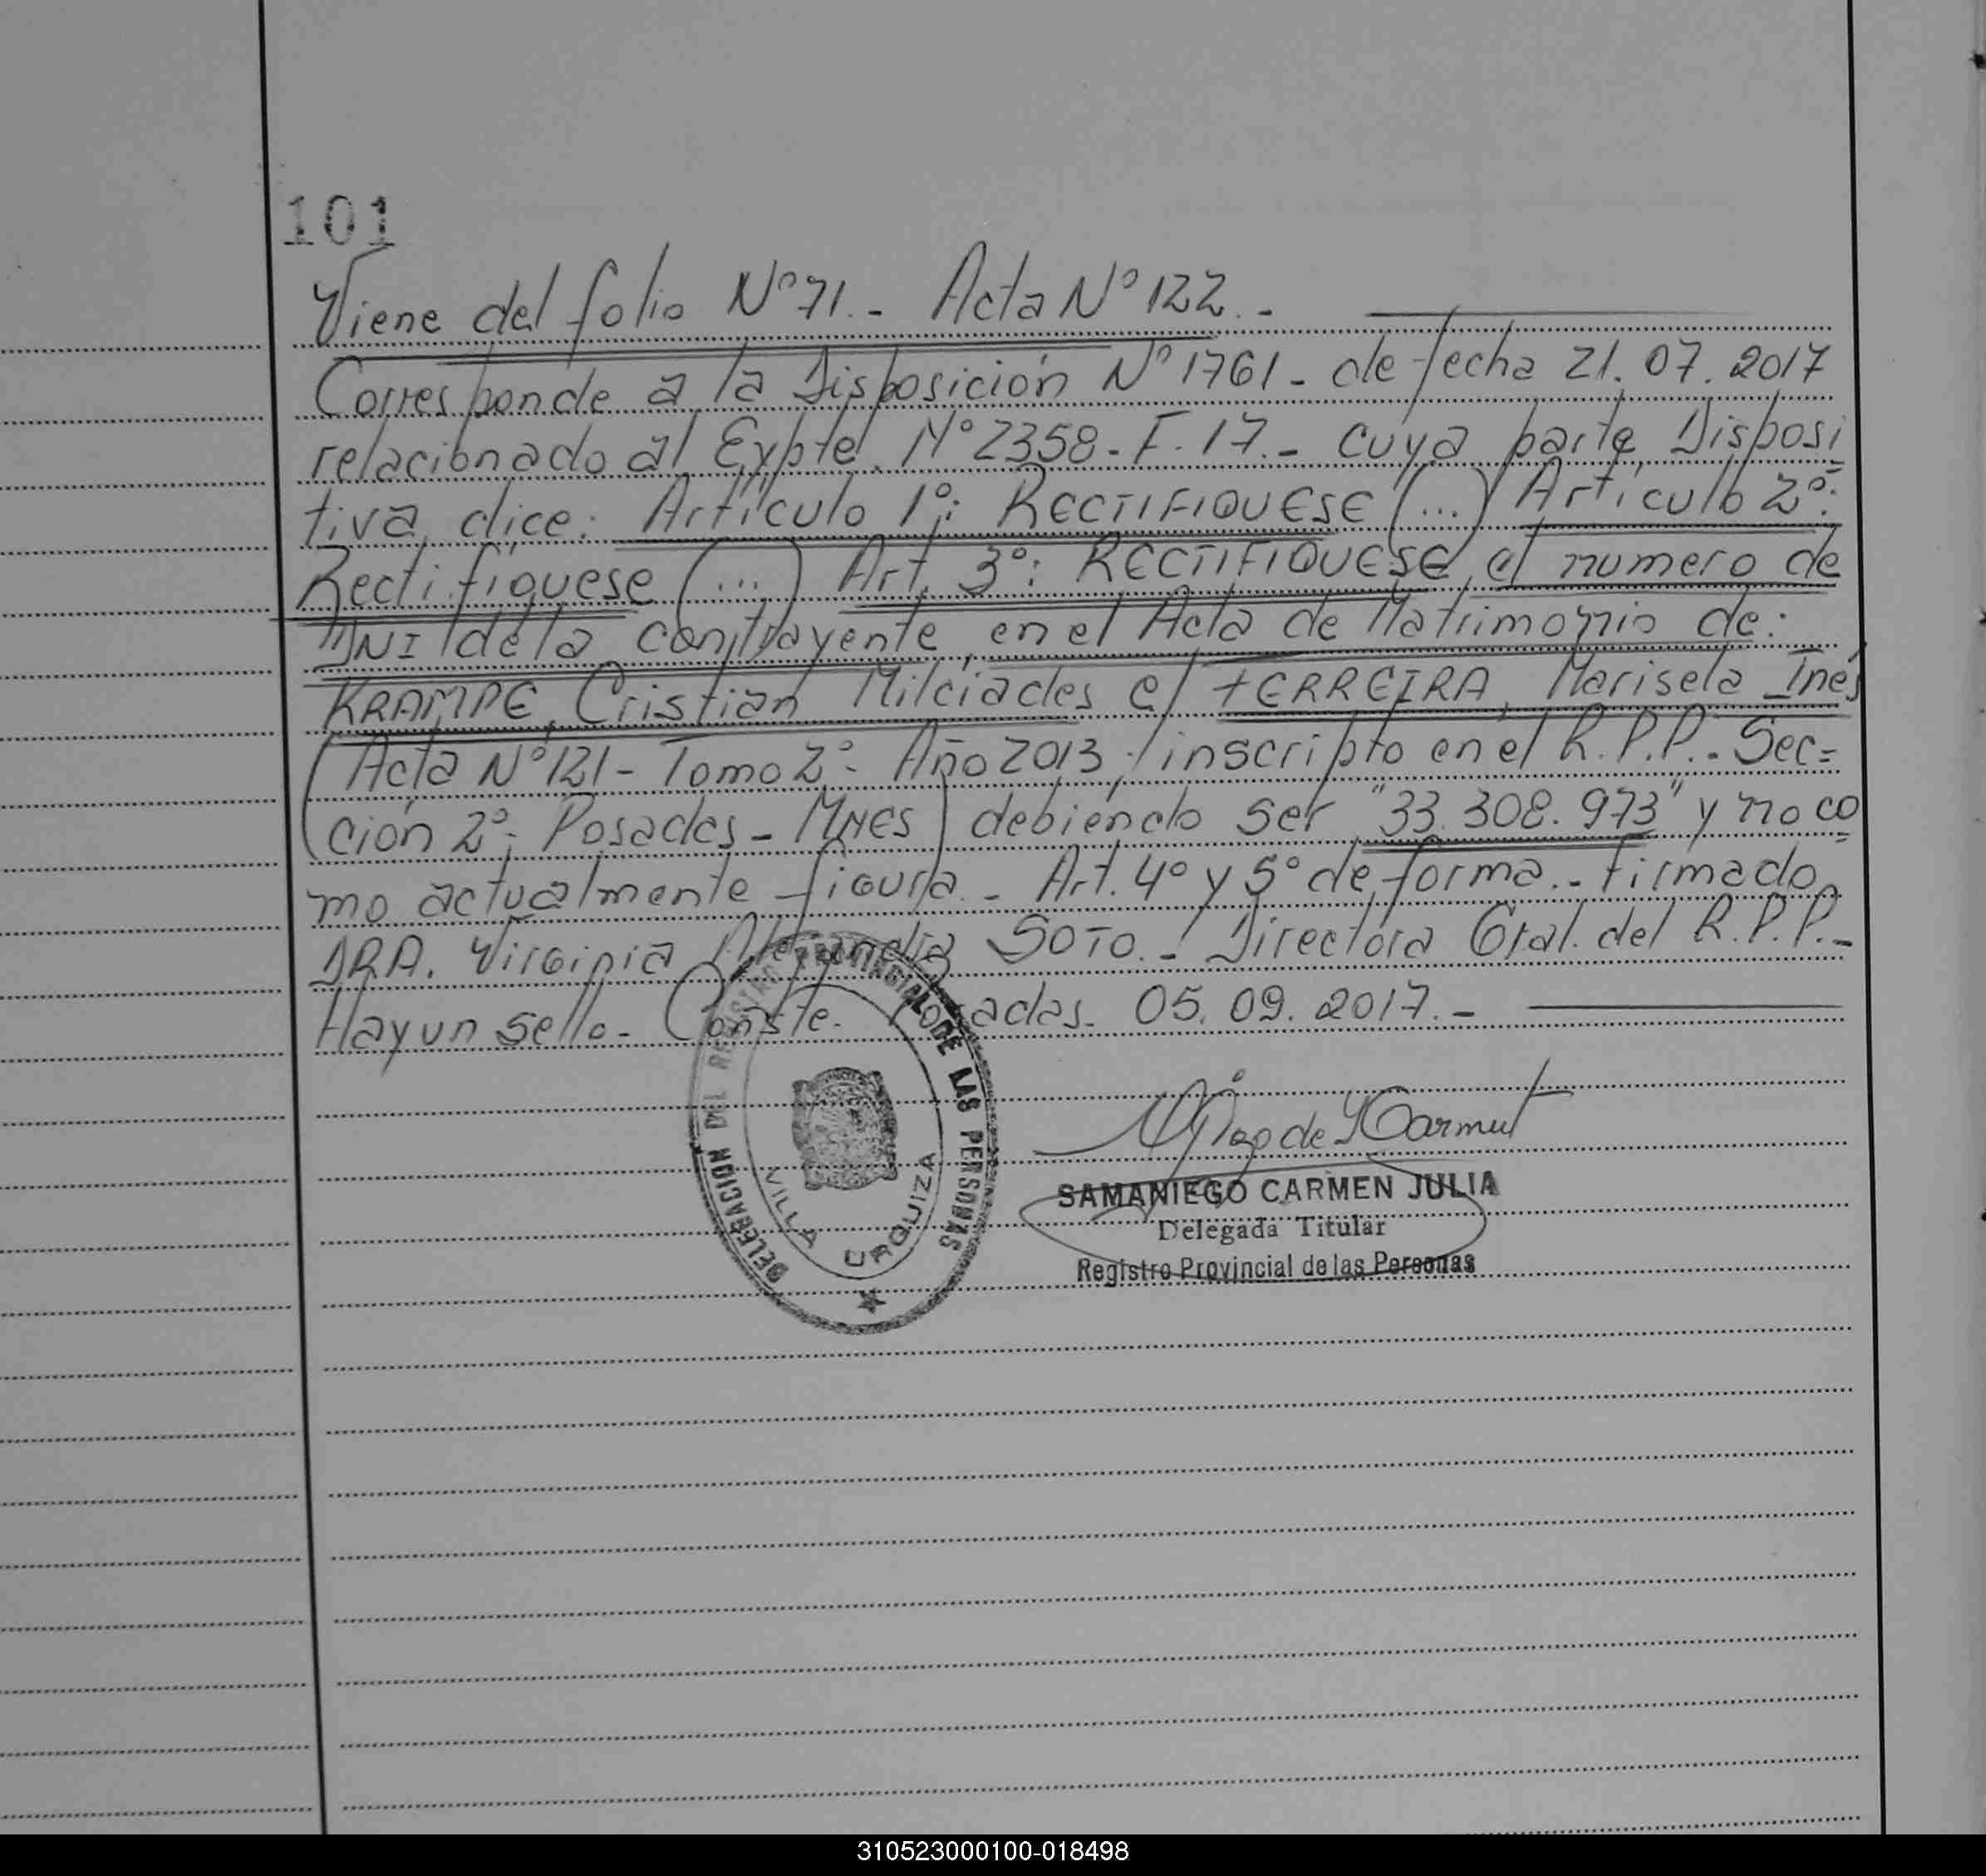 101
Viene del folio N° 71.- Acta N° 122.-
Corresponde a la Disposición N° 1761- de fecha 21.07.2017
relacionado al Expte. N° 2358-F-17.- cuya parte Disposi
tiva dice: Artículo 1°: RECTIFIQUESE (...) Artículo 2°:
Rectifíquese (...) Art. 3°: RECTIFIQUESE el numero de
DNI de la contrayente, en el Acta de Matrimonio de:
KRAMPE, Cristian Milciades c/ FERREIRA, Marisela Inés
(Acta N° 121- Tomo 2°- Año 2013, inscripto en el R.P.P.- Sec=
ción 2°- Posadas- MNES) debiendo ser "33.308.973" y no co
mo actualmente figura.- Art. 4° y 5° de forma.- Firmado
DRA. Virginia Alejandra SOTO.- Directora Gral. del R.P.P.-
Hay un sello.- Conste. Posadas. 05.09.2017.-
DELEGACION DEL REGISTRO PROVINCIAL DE LAS PERSONAS
VILLA URQUIZA
SAMANIEGO CARMEN JULIA
Delegada Titular
Registro Provincial de las Personas
310523000100-018498